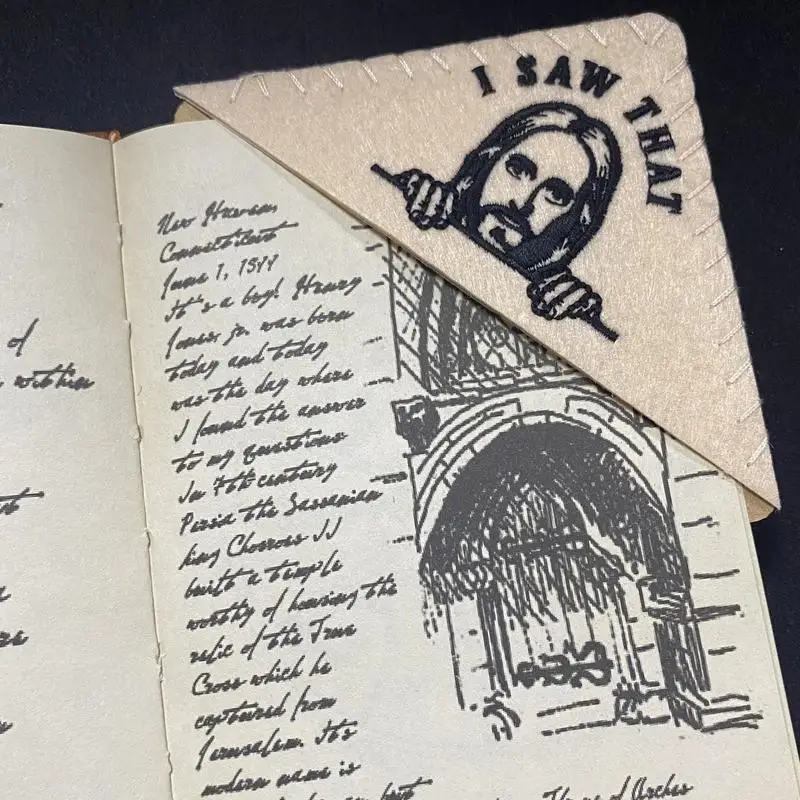 I SAW THAT
of
within
New Haven,
Connecticut
June 1,
It's a boy! Henry
Jones, jr. was born
today and today
was the day where
I found the answer
to my questions
In 7th century
Persia the Sassanian
king Chosroes II
built a temple
worthy of housing the
relic of the True
Cross which he
captured from
Jerusalem. Its
modern name is
of Arches